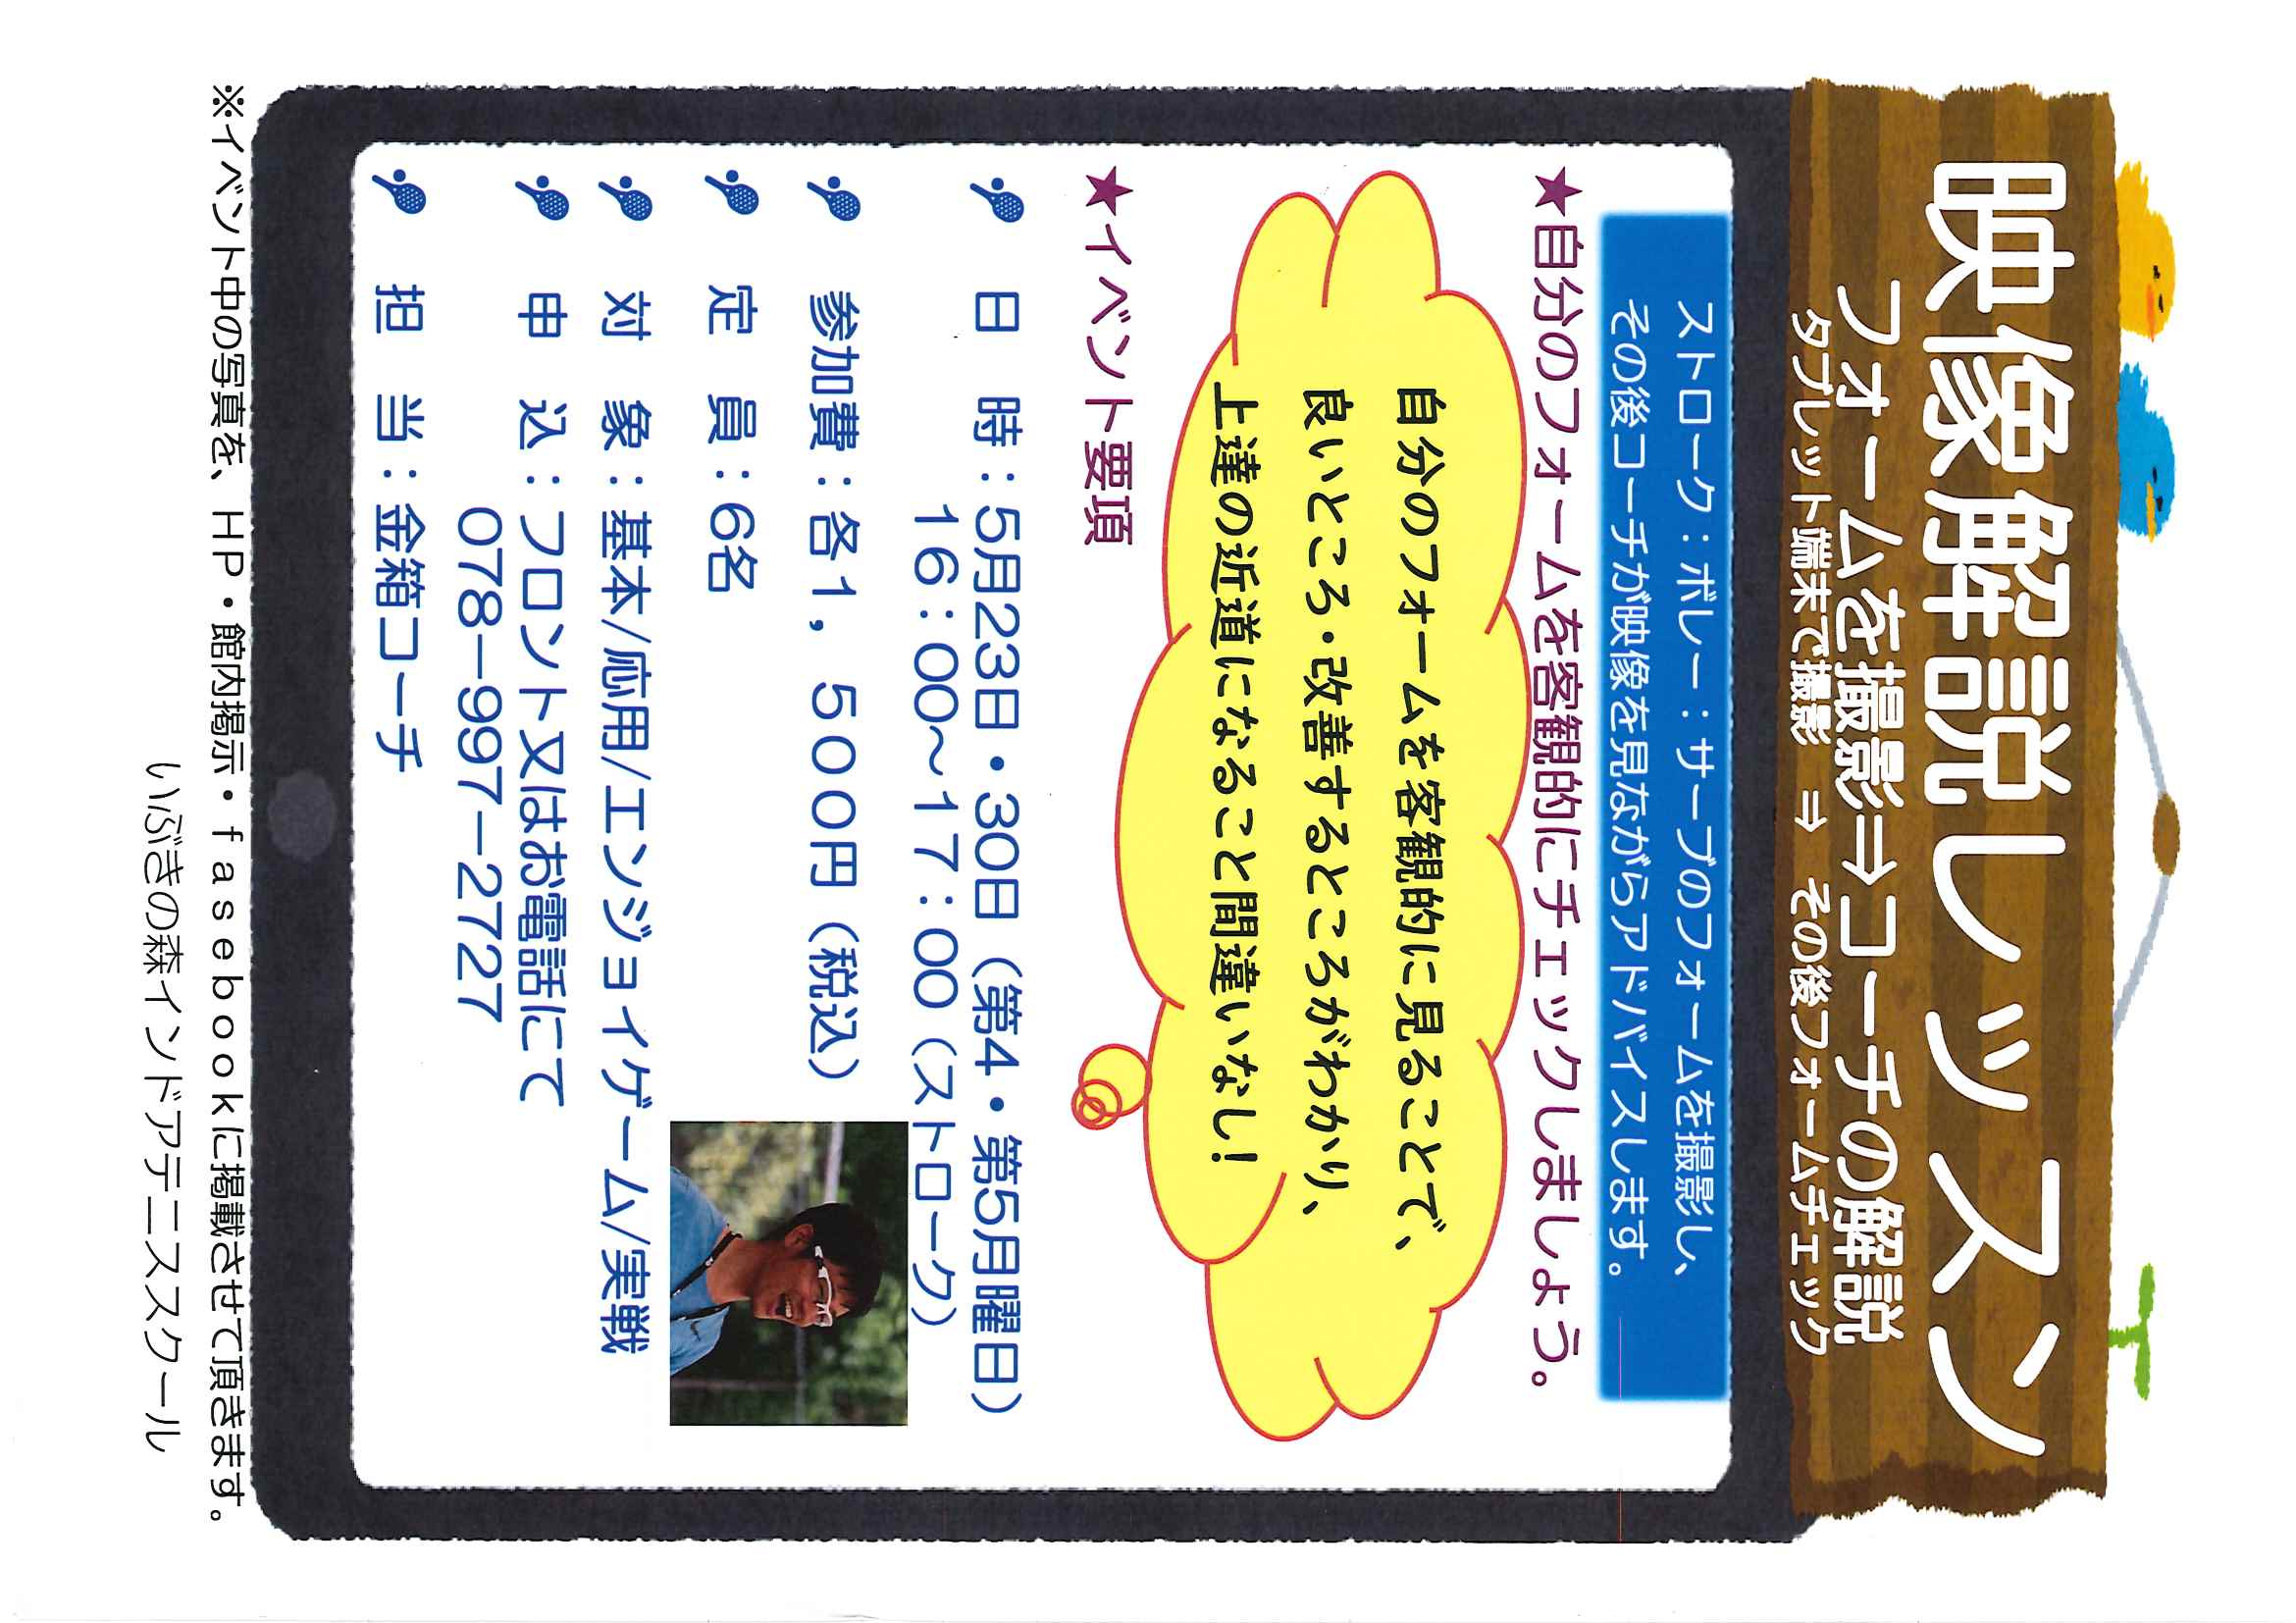 映像解説レッスン
フォームを撮影⇒コーチの解説
タブレット端末で撮影 ⇒ その後フォームチェック
ストローク：ボレー：サーブのフォームを撮影し、
その後コーチが映像を見ながらアドバイスします。
★自分のフォームを客観的にチェックしましょう。
自分のフォームを客観的に見ることで、
良いところ・改善するところがわかり、
上達の近道になること間違いなし！
★イベント要項
日 時：５月２３日・３０日（第４・第５月曜日）
１６：００～１７：００（ストローク）
参加費：各１，５００円（税込）
定 員：６名
対 象：基本/応用/エンジョイゲーム/実戦
申 込：フロント又はお電話にて
０７８－９９７－２７２７
担 当：金箱コーチ
※イベント中の写真を、ＨＰ・館内掲示・ｆａｓｅｂｏｏｋに掲載させて頂きます。
いぶきの森インドアテニススクール